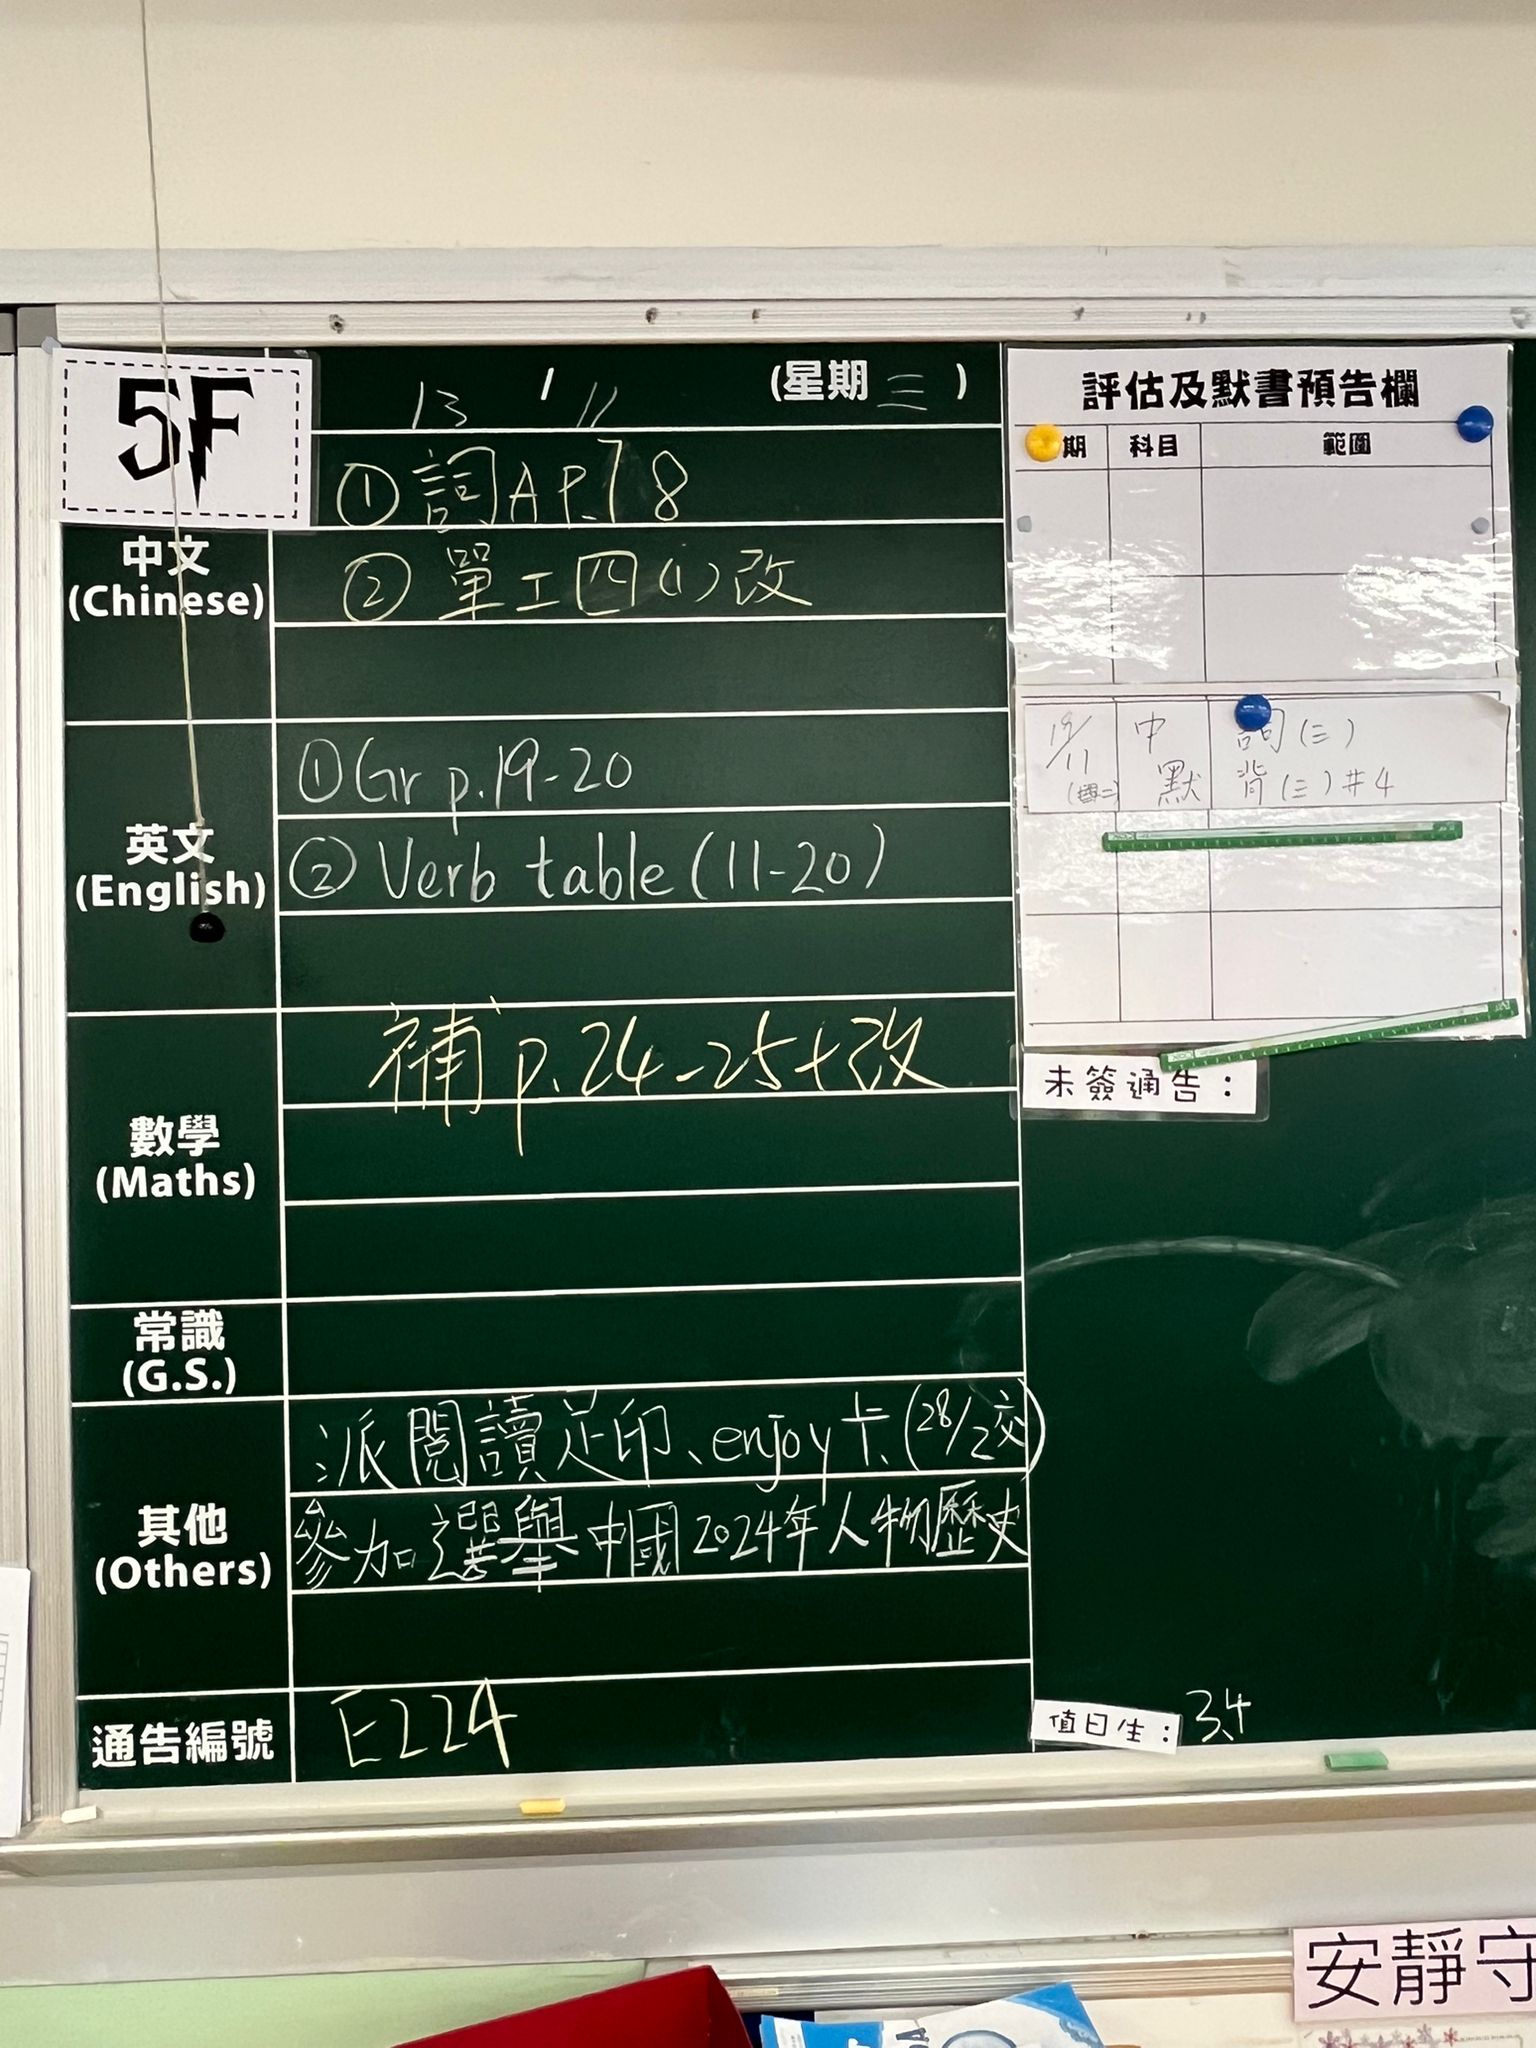 5F
13 / 11 (星期三)
中文
(Chinese)
①詞A P.78
②單工四(1)改
英文
(English)
①Gr p.19-20
②Verb table (11-20)
數學
(Maths)
補 p.24-25+改
常識
(G.S.)
其他
(Others)
派閱讀足印、enjoy卡(28/2交)
參加選舉中國2024年人物歷史
通告編號
E224
評估及默書預告欄
期 科目 範圍
19/11 中默 詞(三)
背(三)#4
未簽通告：
值日生： 3、4
安靜守